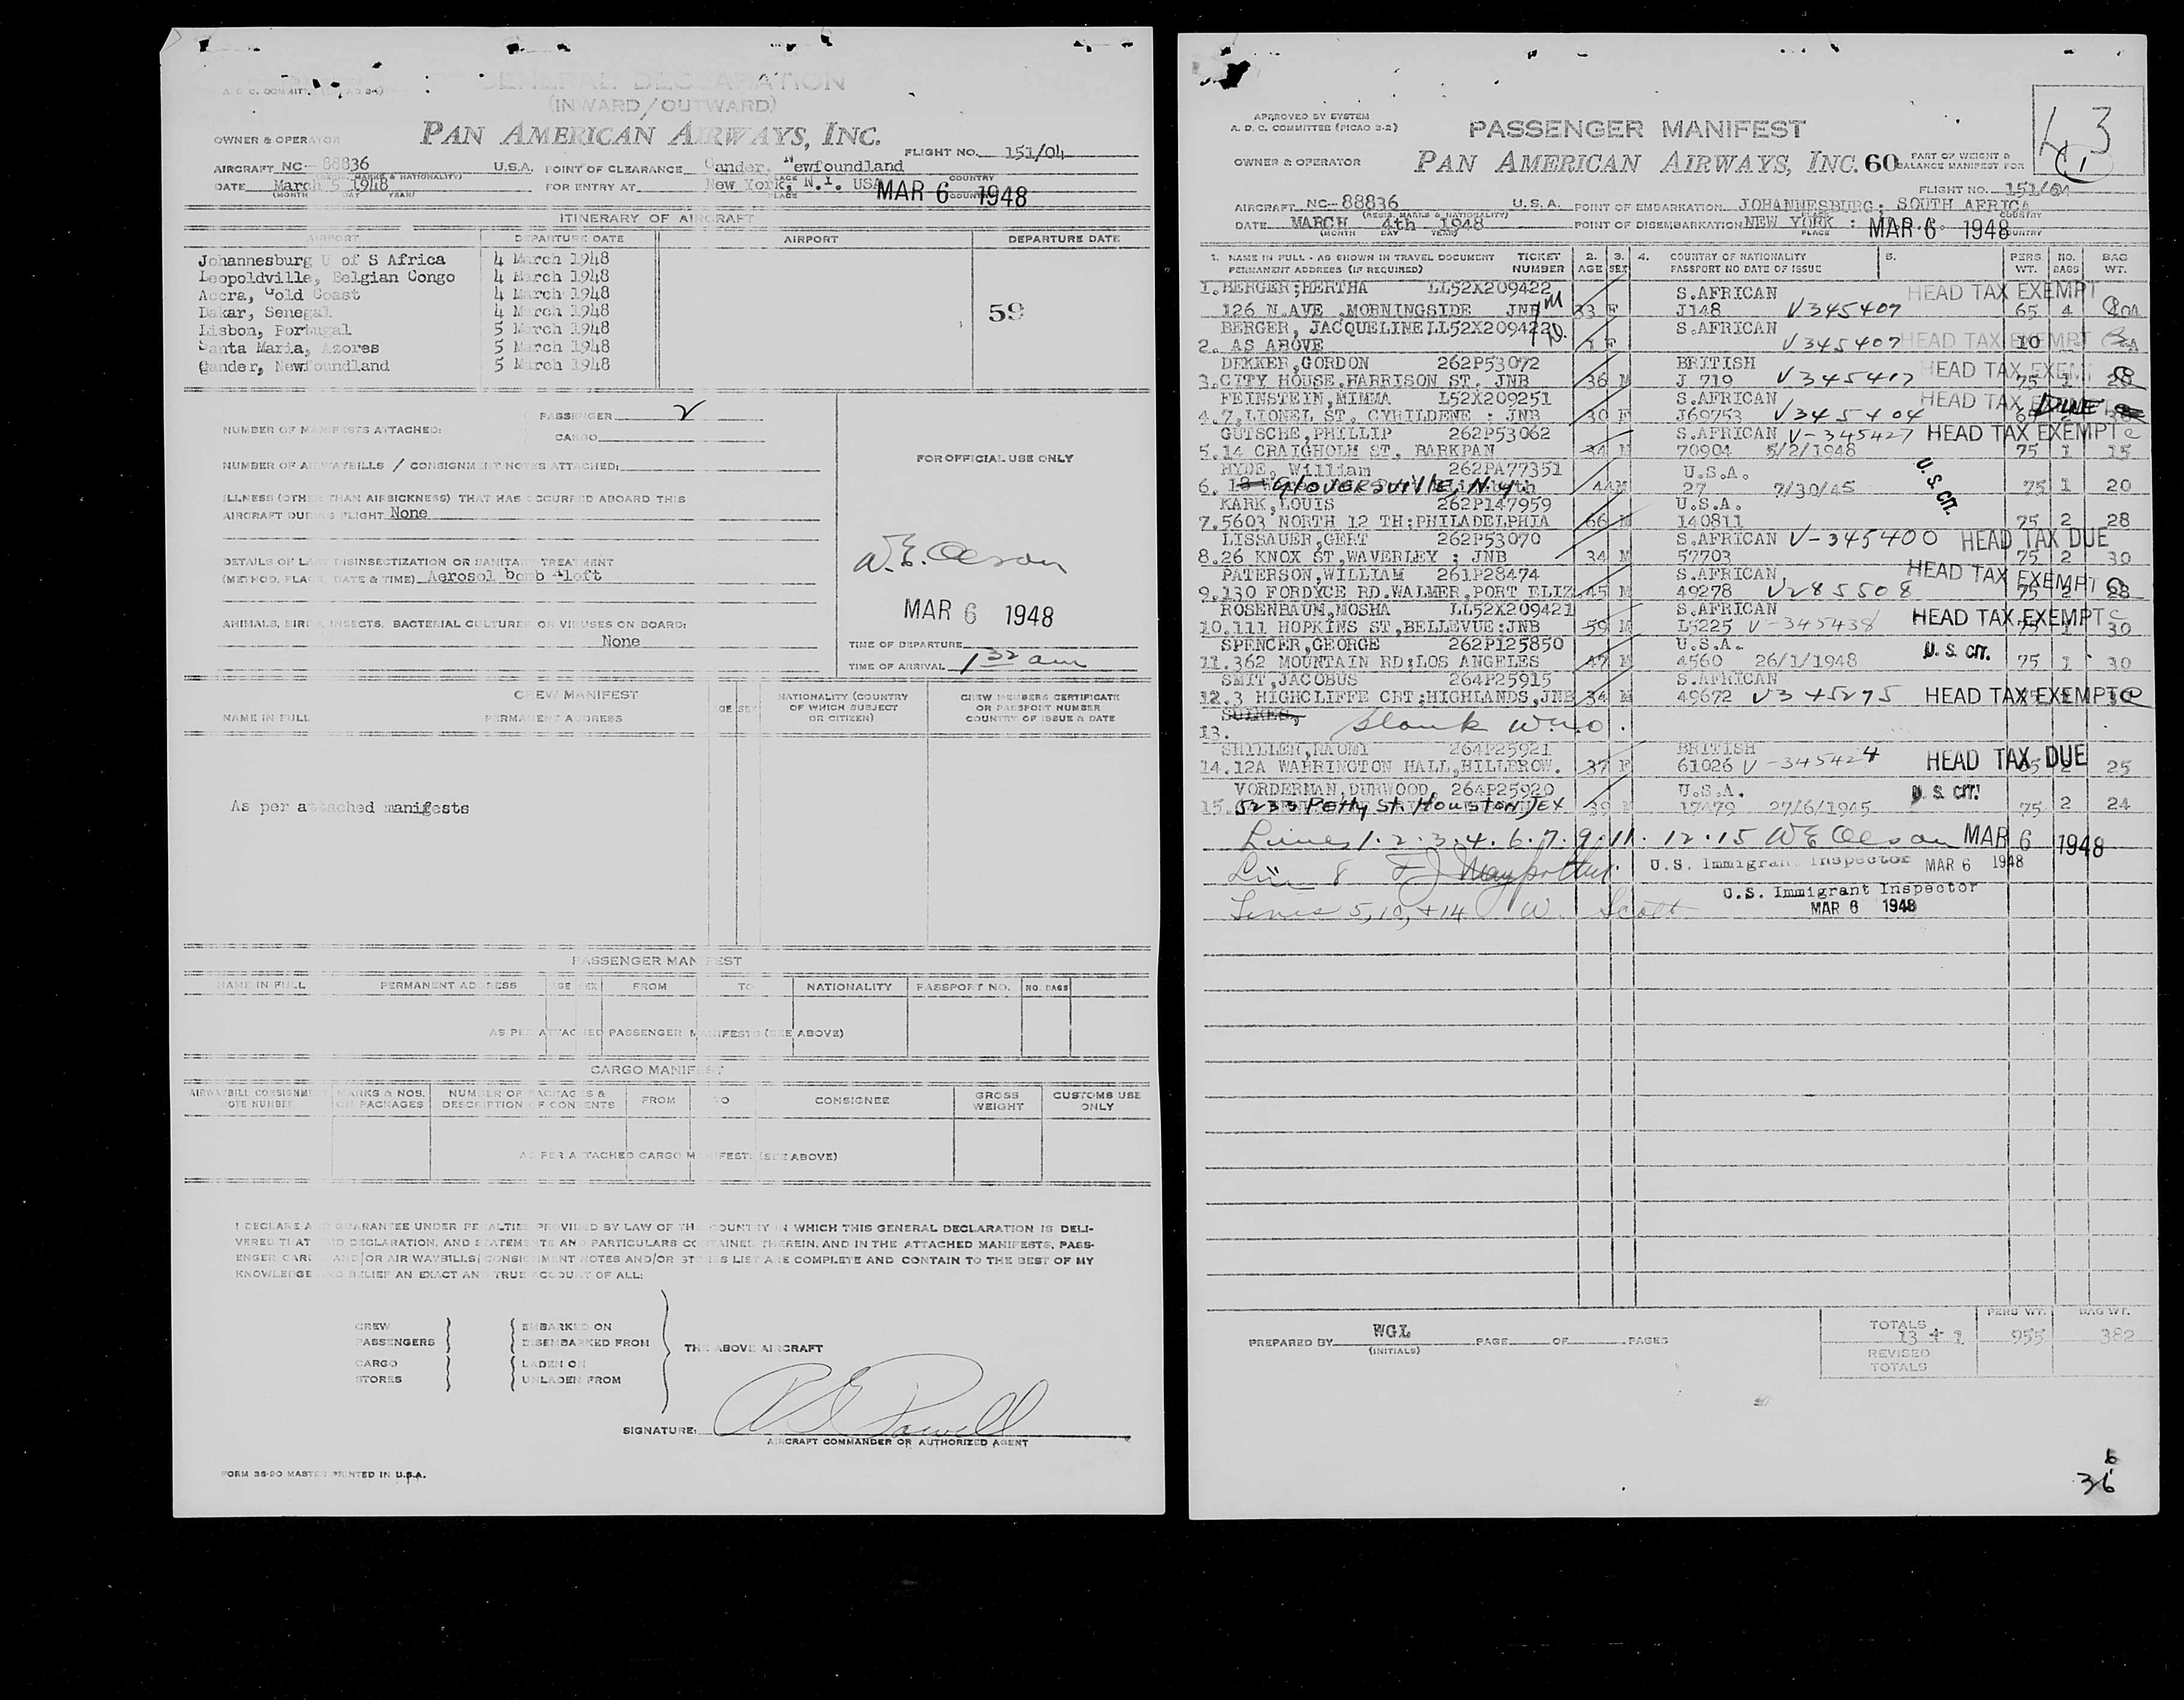 GENERAL DECLARATION
(INWARD/OUTWARD)
OWNER & OPERATOR PAN AMERICAN AIRWAYS, INC.
FLIGHT NO. 151/04
AIRCRAFT NC-88836 U.S.A. POINT OF CLEARANCE Gander, Newfoundland
(REGIS. MARKS & NATIONALITY) PLACE COUNTRY
DATE March 5 1948 FOR ENTRY AT New York, N.Y. USA MAR 6 1948
(MONTH DAY YEAR) PLACE COUNTRY
ITINERARY OF AIRCRAFT
AIRPORT DEPARTURE DATE AIRPORT DEPARTURE DATE
Johannesburg U of S Africa 4 March 1948
Leopoldville, Belgian Congo 4 March 1948
Accra, Gold Coast 4 March 1948
Dakar, Senegal 4 March 1948
59
Lisbon, Portugal 5 March 1948
Santa Maria, Azores 5 March 1948
Gander, Newfoundland 5 March 1948
PASSENGER 2
NUMBER OF MANIFESTS ATTACHED:
CARGO
NUMBER OF AIRWAYBILLS / CONSIGNMENT NOTES ATTACHED:
FOR OFFICIAL USE ONLY
ILLNESS (OTHER THAN AIRSICKNESS) THAT HAS OCCURRED ABOARD THIS
AIRCRAFT DURING FLIGHT None
DETAILS OF LAST DISINSECTIZATION OR SANITARY TREATMENT
(METHOD, PLACE, DATE & TIME) Aerosol bomb Aloft
W. E. Oleson
MAR 6 1948
ANIMALS, BIRDS, INSECTS, BACTERIAL CULTURES OR VIRUSES ON BOARD:
None
TIME OF DEPARTURE
TIME OF ARRIVAL 1 32 am
CREW MANIFEST
NAME IN FULL PERMANENT ADDRESS AGE SEX NATIONALITY (COUNTRY OF WHICH SUBJECT OR CITIZEN) CREW MEMBERS CERTIFICATE OR PASSPORT NUMBER COUNTRY OF ISSUE & DATE
As per attached manifests
PASSENGER MANIFEST
NAME IN FULL PERMANENT ADDRESS AGE SEX FROM TO NATIONALITY PASSPORT NO. NO. BAGS
AS PER ATTACHED PASSENGER MANIFESTS (SEE ABOVE)
CARGO MANIFEST
AIRWAYBILL CONSIGNMENT NOTE NUMBER MARKS & NOS. ON PACKAGES NUMBER OF PACKAGES & DESCRIPTION OF CONTENTS FROM TO CONSIGNEE GROSS WEIGHT CUSTOMS USE ONLY
AS PER ATTACHED CARGO MANIFESTS (SEE ABOVE)
I DECLARE AND GUARANTEE UNDER PENALTIES PROVIDED BY LAW OF THE COUNTRY IN WHICH THIS GENERAL DECLARATION IS DELI-
VERED THAT SAID DECLARATION, AND STATEMENTS AND PARTICULARS CONTAINED THEREIN, AND IN THE ATTACHED MANIFESTS, PASS-
ENGER CARD AND/OR AIR WAYBILLS/CONSIGNMENT NOTES AND/OR STORES LIST ARE COMPLETE AND CONTAIN TO THE BEST OF MY
KNOWLEDGE AND BELIEF AN EXACT AND TRUE ACCOUNT OF ALL:
CREW EMBARKED ON
PASSENGERS DISEMBARKED FROM
THE ABOVE AIRCRAFT
CARGO LADEN ON
STORES UNLADEN FROM
SIGNATURE: Powell
AIRCRAFT COMMANDER OR AUTHORIZED AGENT
FORM 36-90 MASTER PRINTED IN U.S.A.
APPROVED BY SYSTEM
A. D. C. COMMITTEE (PICAO 3-2)
PASSENGER MANIFEST
OWNER & OPERATOR PAN AMERICAN AIRWAYS, INC. 60 PART OF WEIGHT & BALANCE MANIFEST FOR
FLIGHT NO. 151/04
AIRCRAFT NC-88836 U.S.A. POINT OF EMBARKATION JOHANNESBURG: SOUTH AFRICA
(REGIS. MARKS & NATIONALITY) PLACE COUNTRY
DATE MARCH 4th 1948 POINT OF DISEMBARKATION NEW YORK : MAR 6 1948
(MONTH DAY YEAR) PLACE COUNTRY
1. NAME IN FULL - AS SHOWN IN TRAVEL DOCUMENT TICKET 2. 3. 4. COUNTRY OF NATIONALITY 5. PERS NO. BAG
PERMANENT ADDRESS (IF REQUIRED) NUMBER AGE SEX PASSPORT NO DATE OF ISSUE WT. BAGS WT.
1. BERGER;BERTHA LL52X209422 S.AFRICAN HEAD TAX EXEMPT
126 N.AVE ,MORNINGSIDE JNB 33 F J148 V345407 65 4
BERGER, JACQUELINE LL52X209422 S.AFRICAN
2. AS ABOVE 1 F V345407 HEAD TAX EXEMPT 10
DEKKER,GORDON 262P53072 BRITISH
3. CITY HOUSE,HARRISON ST. JNB 36 M J 719 V345417 HEAD TAX EXEMPT 75 1
FEINSTEIN,MIMMA L52X209251 S.AFRICAN HEAD TAX DUE
4. 7,LIONEL ST, CYRILDENE : JNB 30 F J69753 V345404
GUTSCHE,PHILLIP 262P53062 S.AFRICAN V-345427 HEAD TAX EXEMPT
5. 14 CRAIGHOLM ST, BARKPAN 34 M 70904 5/2/1948 75 1 15
HYDE, William 262PA77351 U.S.A. U.S. CIT.
6. Gloversville, N.Y. 44 M 27 7/30/45 75 1 20
KARK,LOUIS 262P147959 U.S.A.
7. 5603 NORTH 12 TH:PHILADELPHIA 66 M 140811 75 2 28
LISSAUER,GERT 262P53070 S.AFRICAN V-345400 HEAD TAX DUE
8. 26 KNOX ST,WAVERLEY ; JNB 34 M 57703 75 2 30
PATERSON,WILLIAM 261P28474 S.AFRICAN HEAD TAX EXEMPT
9. 130 FORDYCE RD.WALMER,PORT ELIZ 45 M 49278 V285508 75 2 28
ROSENBAUM,MOSHA LL52X209421 S.AFRICAN
10. 111 HOPKINS ST,BELLEVUE:JNB 59 M L5225 V-345438 HEAD TAX EXEMPT 75 1 30
SPENCER,GEORGE 262P125850 U.S.A.
11. 362 MOUNTAIN RD;LOS ANGELES 47 M 4560 26/1/1948 U.S. CIT. 75 1 30
SMIT,JACOBUS 264P25915 S.AFRICAN
12. 3 HIGHCLIFFE CRT;HIGHLANDS,JNB 34 M 49672 V345275 HEAD TAX EXEMPT
13. Blank
SHILLER,NAOMI 264P25921 BRITISH
14. 12A WARRINGTON HALL,HILLBROW. 37 F 61026 V-345424 HEAD TAX DUE 65 2 25
VORDERMAN,DURWOOD, 264P25920 U.S.A.
15. 5233 Petty St. Houston TEX 39 17479 27/6/1945 U.S. CIT. 75 2 24
Lines 1.2.3.4.6.7.9.11.12.15 W E Oleson MAR 6 1948
Line 8 U.S. Immigrant Inspector MAR 6 1948
U.S. Immigrant Inspector
Lines 5, 10, + 14 W Scott MAR 6 1948
PREPARED BY WGL PAGE OF PAGES
(INITIALS)
PERS WT. BAG WT.
TOTALS 13 + 1 955 382
REVISED TOTALS
6
36